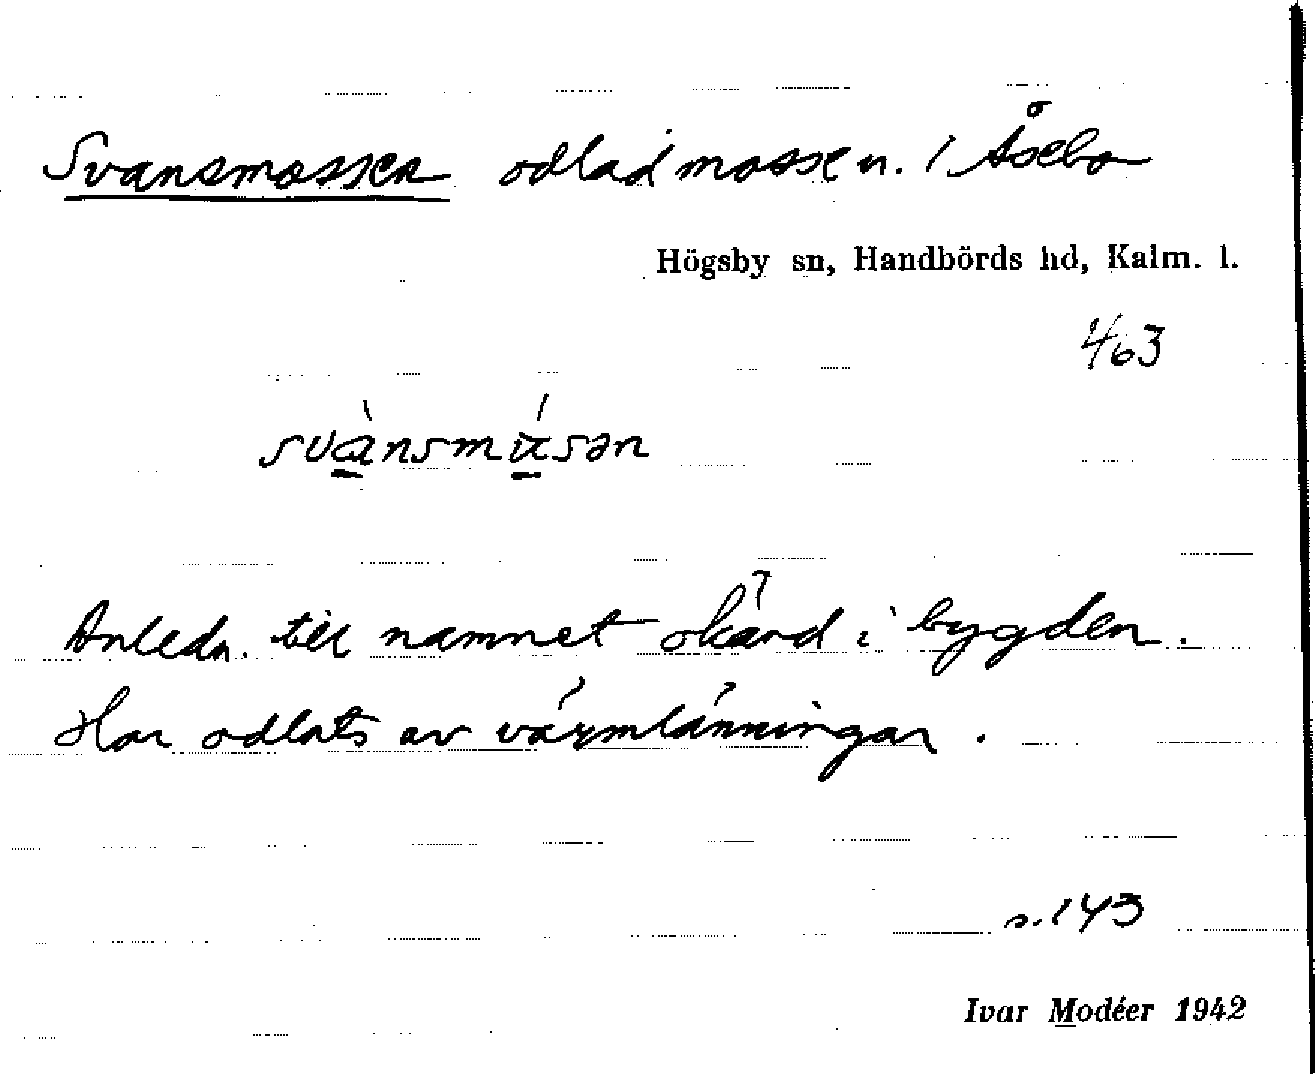 Svansmossen odlad mosse n. / Åsebo
Högsby sn, Handbörds hd, Kalm. l.
1/63
svànsmósən
Anledn. till namnet okänd i bygden.
Har odlats av värmlänningar.
s. 143
Ivar Modéer 1942